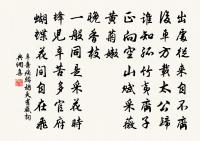 出處從來自不齊
後車方載太公歸
誰知孤竹夷齊子
正向空山賦采薇
黄菊嫩
晚香枝
一般同是采花時
蜂兒辛苦多官府
蝴蝶花間自在飛
辛棄疾鷓鴣天有感詞